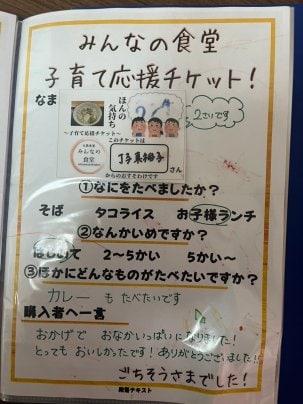 みんなの食堂
子育て応援チケット!
なま
2さいです
ほんの
気持ち
~子育て応援チケット~
このチケットは
みんなの
食堂
さん
からのおすそわけです
①なにをたべましたか?
そば タコライス お子様ランチ
②なんかいめですか?
はじめて 2~5かい 5かい~
③ほかにどんなものがたべたいですか?
カレー も たべたいです
購入者へ一言
おかげで おなかいっぱいになりました!
とっても おいしかったです! ありがとうございました!!
ごちそうさまでした!